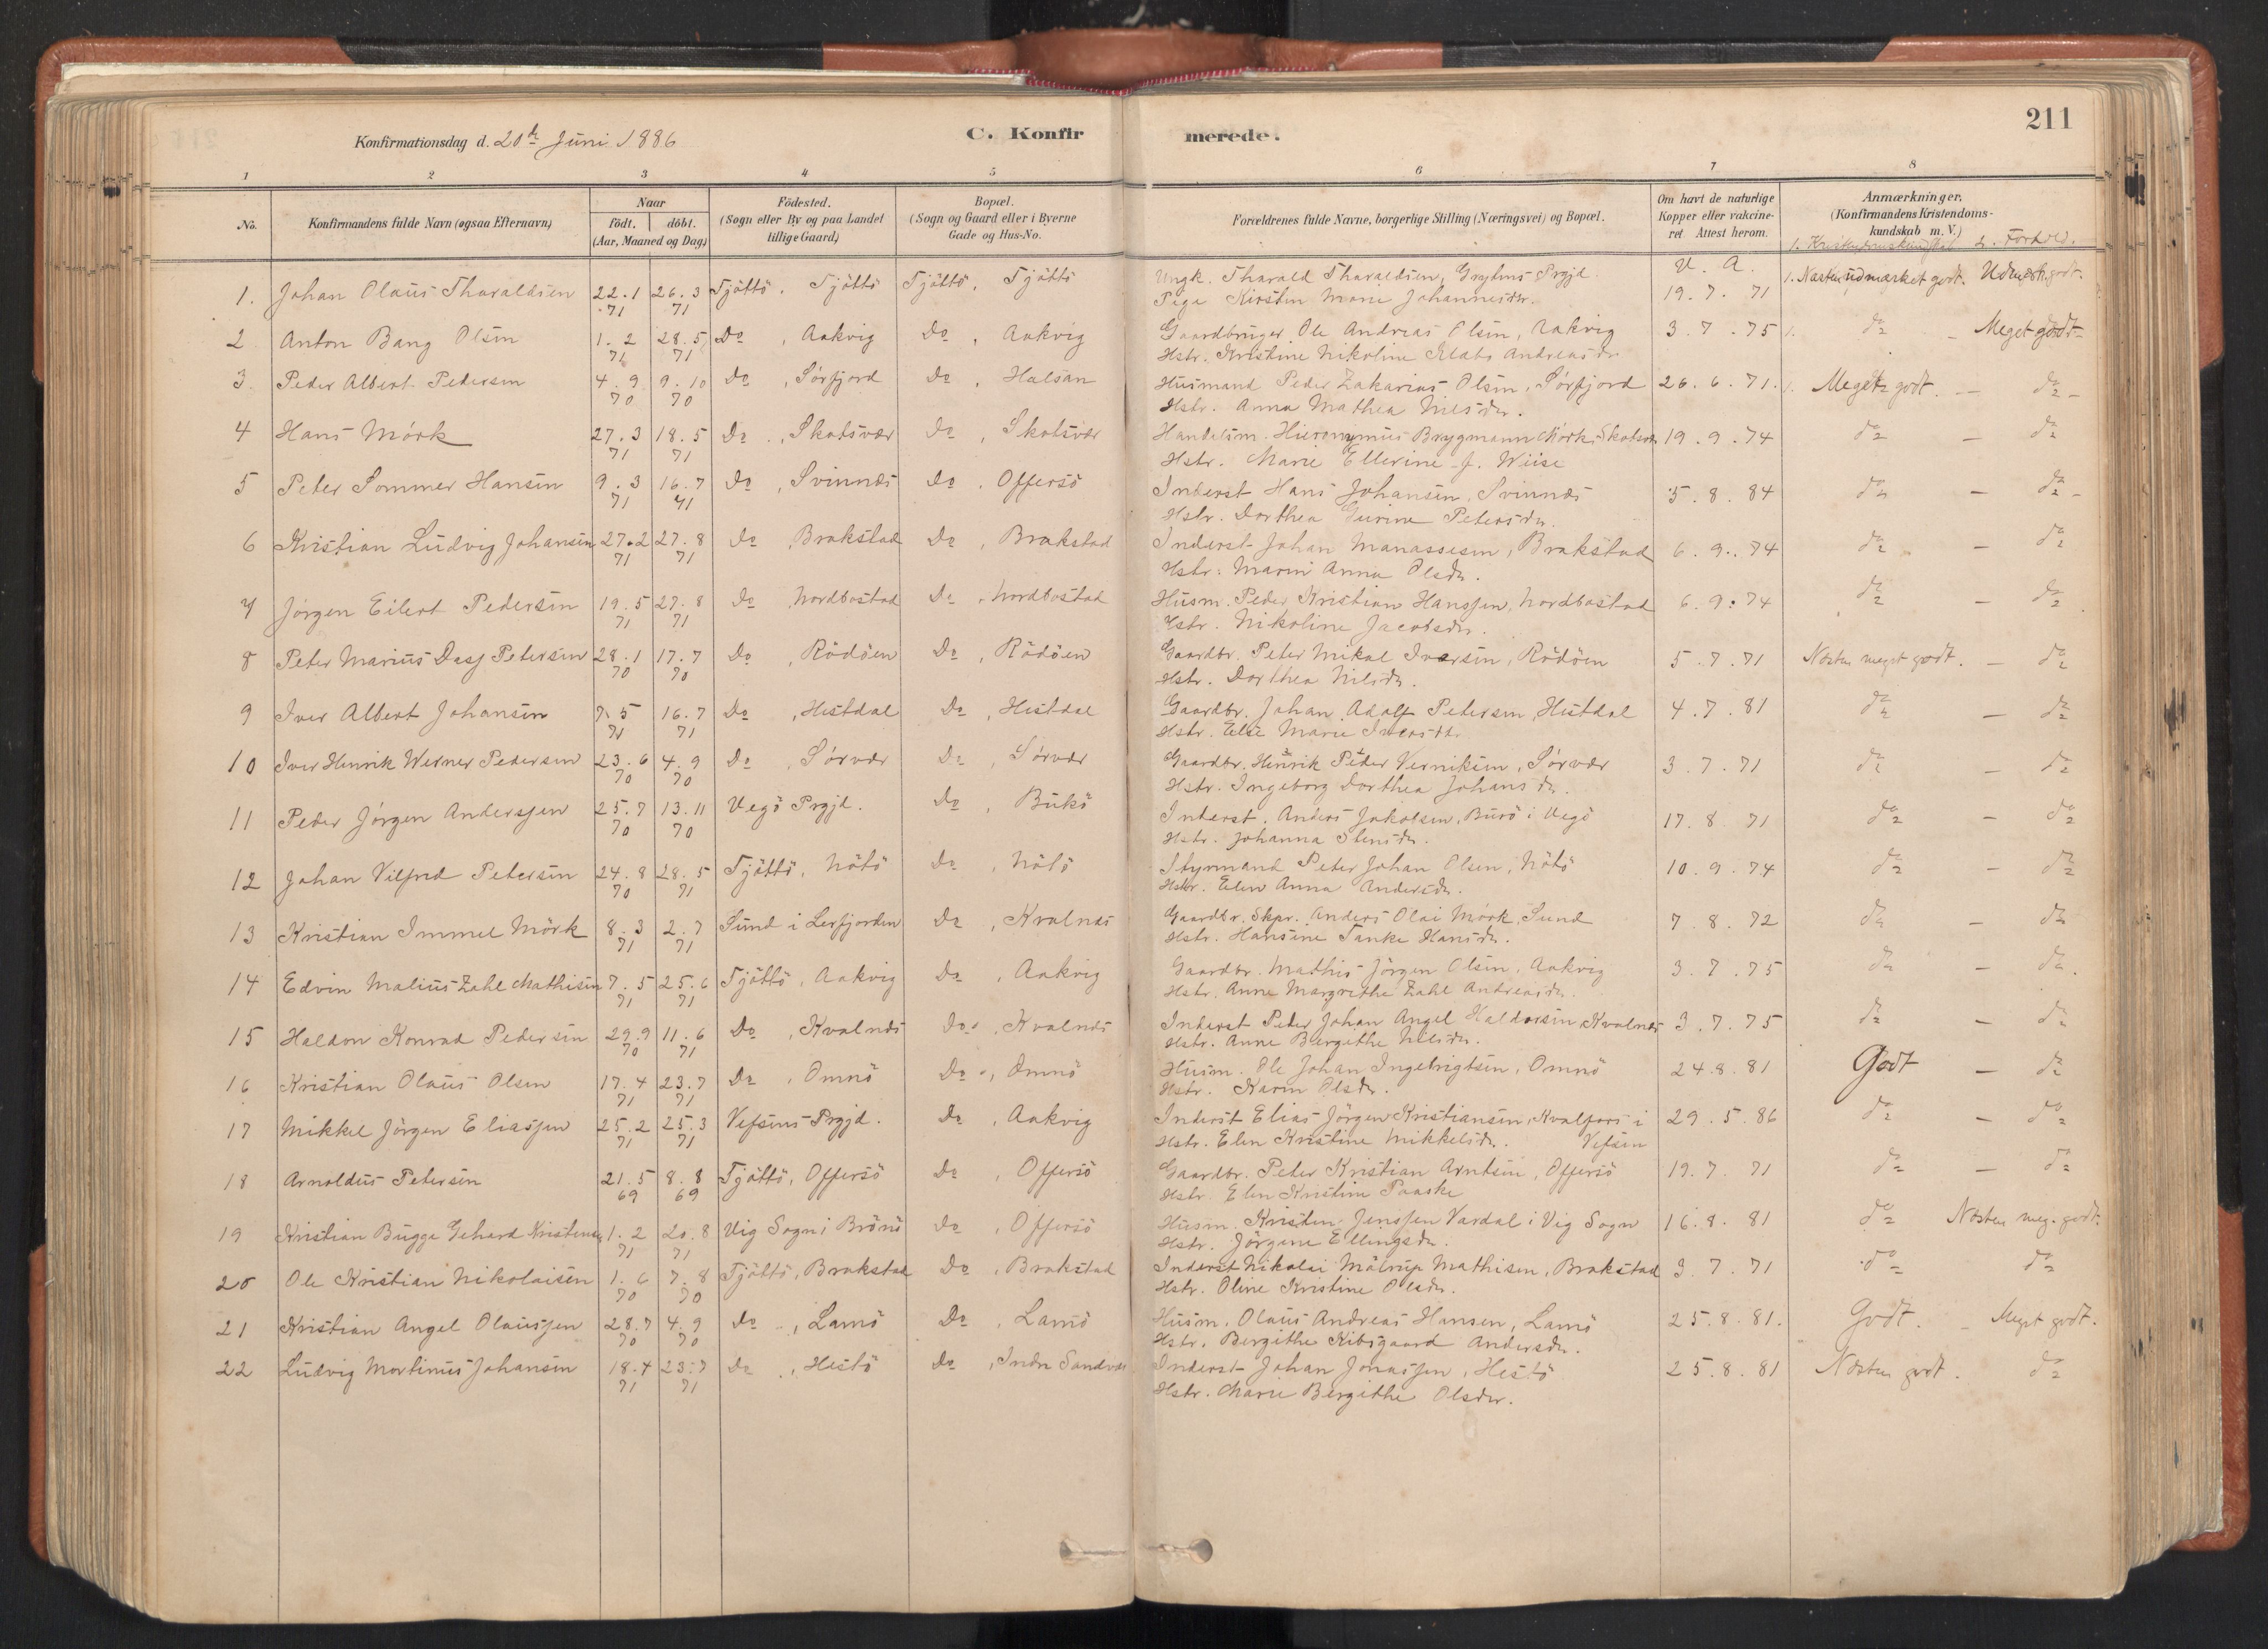 211
Konfirmationsdag d. 20de Juni 1886 C. Konfirmerede.
1 2 3 4 5 6 7 8
No. Konfirmandens fulde Navn (ogsaa Efternavn) Naar födt. döbt. (Aar, Maaned og Dag) Födested. (Sogn eller By og paa Landet tillige Gaard) Bopæl. (Sogn og Gaard eller i Byerne Gade og Hus-No. Forældrenes fulde Navne, borgerlige Stilling (Næringsvei) og Bopæl. Om havt de naturlige Kopper eller vakcineret Attest herom. Anmærkninger. (Konfirmandens Kristendomskundskab m. V.)
1. Kristendomskundskab 2. Forhold.
1. Johan Olaus Tharaldsen 22.1 71 26.3 71 Tjöttö, Tjöttö Tjöttö, Tjöttö Ungk. Tharald Tharaldsen, Prgjd. V. A. 1. Næsten udmærket godt. Udmærk. godt.
Pige Kirstin Marie Johannesdr. 19.7.71
2 Anton Bang Olsen 1.2 71 28.5 71 Do, Aakvig Do, Aakvig Gaardbruger Ole Andreas Olsen, Aakvig 3.7.75 1. do - Meget godt-
Hstr. Kristine Nikoline Andreasdr
3. Peder Albert Pedersen 4.9 70 9.10 70 Do, Sörfjord Do, Halsan Husmand Peder Zakarias Olsen, Sörfjord 26.6.71. 1. Meget godt. - do -
Hstr. Anna Mathea Nilsdr.
4 Hans Mörk 27.3 71 18.5 71 Do, Skotsvær Do, Skotsvær Handelsm. Hieronymus Brygmann Mörk, Skotsvær 19.9.74 do - do
Hstr. Marie Ellerine J. Wiise
5 Peter Sommer Hansen 9.3 71 16.7 71 Do, Svinnæs Do, Offersö Inderst Hans Johansen, Svinnæs 5.8.84 do - do -
Hstr. Dorthea Gurine Petersdr.
6 Kristian Ludvig Johansen 27.2 71 27.8 71 Do, Brakstad Do, Brakstad Inderst Johan Manassesen, Brakstad 6.9.74 do - do
Hstr. Marin Anna Olsdr.
7 Jörgen Eilert Pedersen 19.5 71 27.8 71 Do, Nordbostad Do, Nordbostad Husm. Peder Kristian Hanssen, Nordbostad 6.9.74 do - do
Hstr. Nikoline Jacobsdr.
8 Peter Marius Dass Petersen 28.1 70 17.7 70 Do, Rödöen Do, Rödöen Gaardbr. Peter Mikal Iversen, Rödöen 5.7.71 Næsten meget godt. - do
Hstr. Dorthea Nilsdr.
9 Iver Albert Johansen 7.5 71 16.7 71 Do, Hestdal Do, Hestdal Gaardbr. Johan Adolf Petersen, Hestdal 4.7.81 do - do
Hstr. Else Marie Iversdr.
10 Iver Henrik Werner Pedersen 23.6 70 4.9 70 Do, Sörvær Do, Sörvær Gaardbr. Henrik Peder Verniksen, Sörvær 3.7.71 do - do
Hstr. Ingeborg Dorthea Johansdr.
11 Peder Jörgen Anderssen 25.7 70 13.11 70 Vegö Prgjd. Do, Bukö Inderst. Anders Jakobsen, Burö i Vegö 17.8.71 do - do
Hstr. Johanna Stensdr.
12 Johan Vilfred Petersen 24.8 70 28.5 71 Tjöttö, Nötö Do, Nötö Styrmand Peter Johan Olsen, Nötö 10.9.74 do - do
Hstr. Elen Anna Andersdr.
13 Kristian Immel Mörk 8.3 71 2.7 71 Sund i Lerfjorden Do, Kvalnæs Gaardbr. Skpr. Anders Olai Mörk, Sund 7.8.72 do - do
Hstr. Hansine Tanke Hansdr.
14 Edvin Malius Zahl Mathisen 7.5 71 25.6 71 Tjöttö, Aakvig Do, Aakvig Gaardbr. Mathis Jörgen Olsen, Aakvig 3.7.75 do - do.
Hstr. Anne Margrethe Zahl Andreasdr.
15 Haldon Konrad Pedersen 29.9 70 11.6 71 Do, Kvalnæs Do, Kvalnæs Inderst Peder Johan Angel Haldorsen Kvalnæs 3.7.75 do - do
Hstr. Anne Bergithe Nilsdr.
16 Kristian Olaus Olsen 17.4 71 23.7 71 Do, Omnö Do, Omnö Husm. Ole Johan Ingebrigtsen, Omnö 24.8.81 Godt - do
Hstr. Karen Olsdr.
17 Mikkel Jörgen Eliassen 25.2 71 25.3 71 Vefsens Prgjd. Do, Aakvig Inderst Elias Jörgen Kristiansen, Kvalfors i 29.5.86 do - do
Hstr. Elen Kristine Mikkelsdr. Vefsen
18 Arnoldus Petersen 21.5 69 8.8 69 Tjöttö, Offersö Do, Offersö Gaardbr. Peter Kristian Arntsen, Offersö 19.7.71 do - do
Hstr. Elen Kristine Paaske
19 Kristian Bugge Gehard Kristensen 1.2 71 20.8 71 Vig Sogn i Brönö Do, Offersö Husm. Kristen Jenssen Vardal i Vig Sogn 16.8.81 do Næsten meg. godt.
Hstr. Jörgine Ellingsdr.
20 Ole Kristian Nikolaisen 1.6 70 7.8 70 Tjöttö, Brakstad Do, Brakstad Inderst Nikolai Mathisen, Brakstad 3.7.71 do do
Hstr. Oline Kristine Olsdr.
21 Kristian Angel Olaussen 28.7 70 4.9 70 Do, Lamö Do, Lamö Husm. Olaus Andreas Hansen, Lamö 25.8.81. Godt. - Meget godt.
Hstr. Bergithe Kibsgaard Andersdr.
22 Ludvig Martinus Johansen 18.4 71 23.7 71 Do, Hestö Do, Indr. Sandvær Inderst Johan Jonassen, Hestö 25.8.81 Næsten godt. do
Hstr. Marie Bergithe Olsdr.